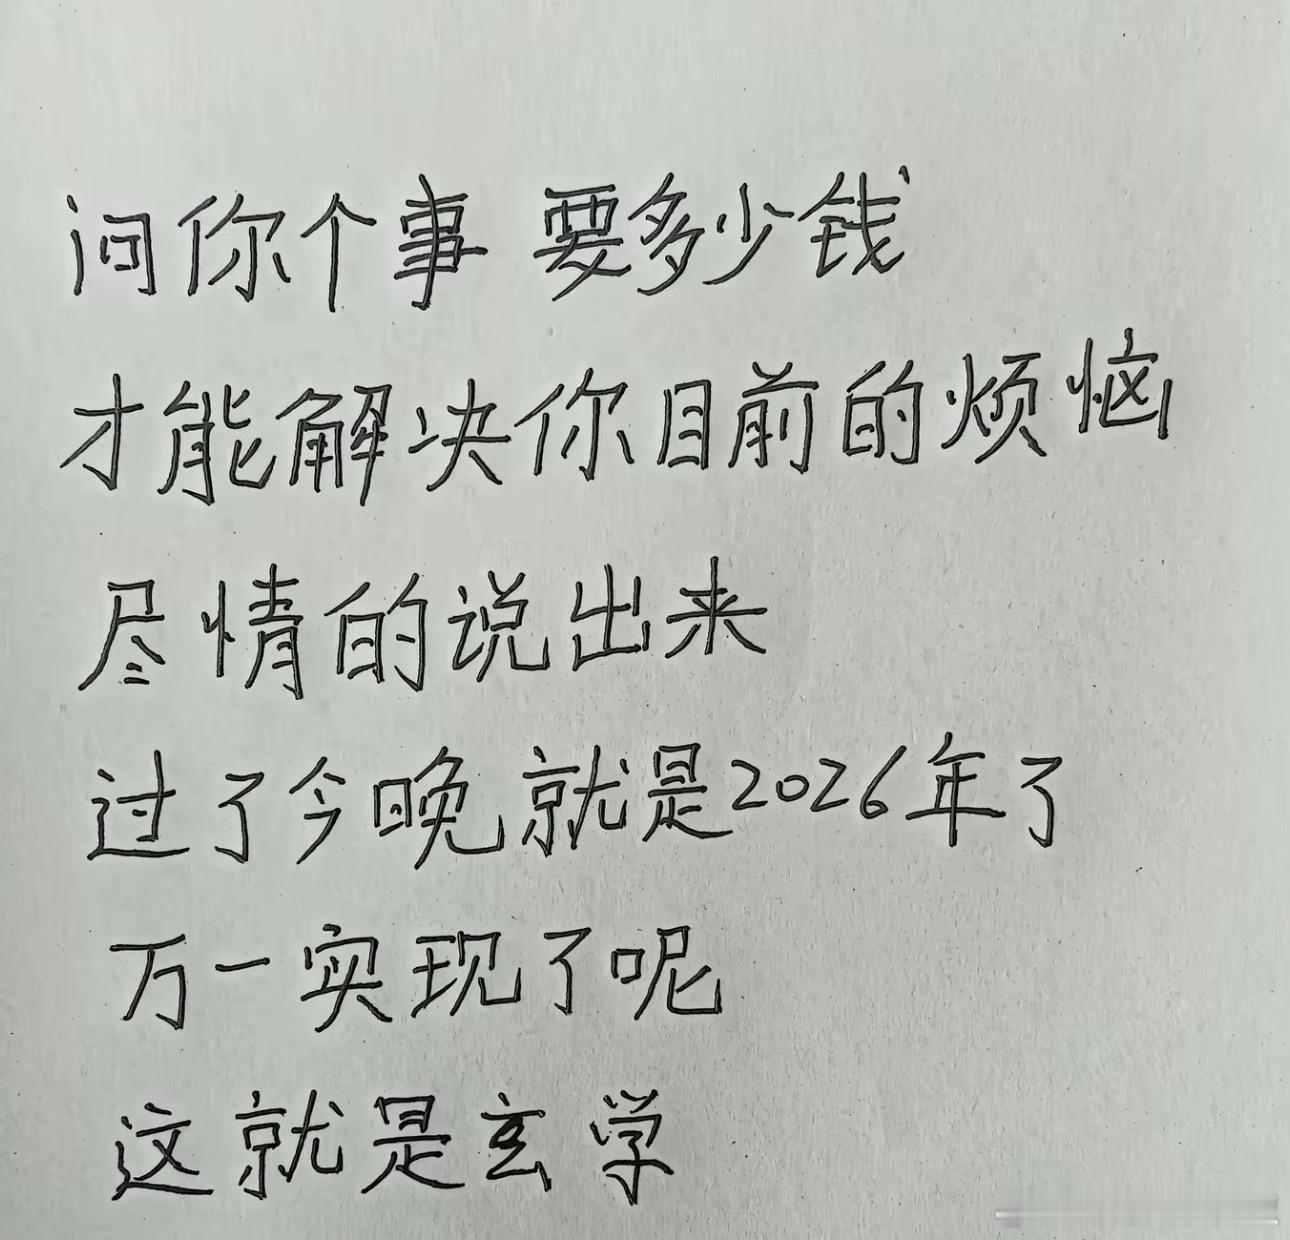 问你个事 要多少钱
才能解决你目前的烦恼
尽情的说出来
过了今晚就是2026年了
万一实现了呢
这就是玄学